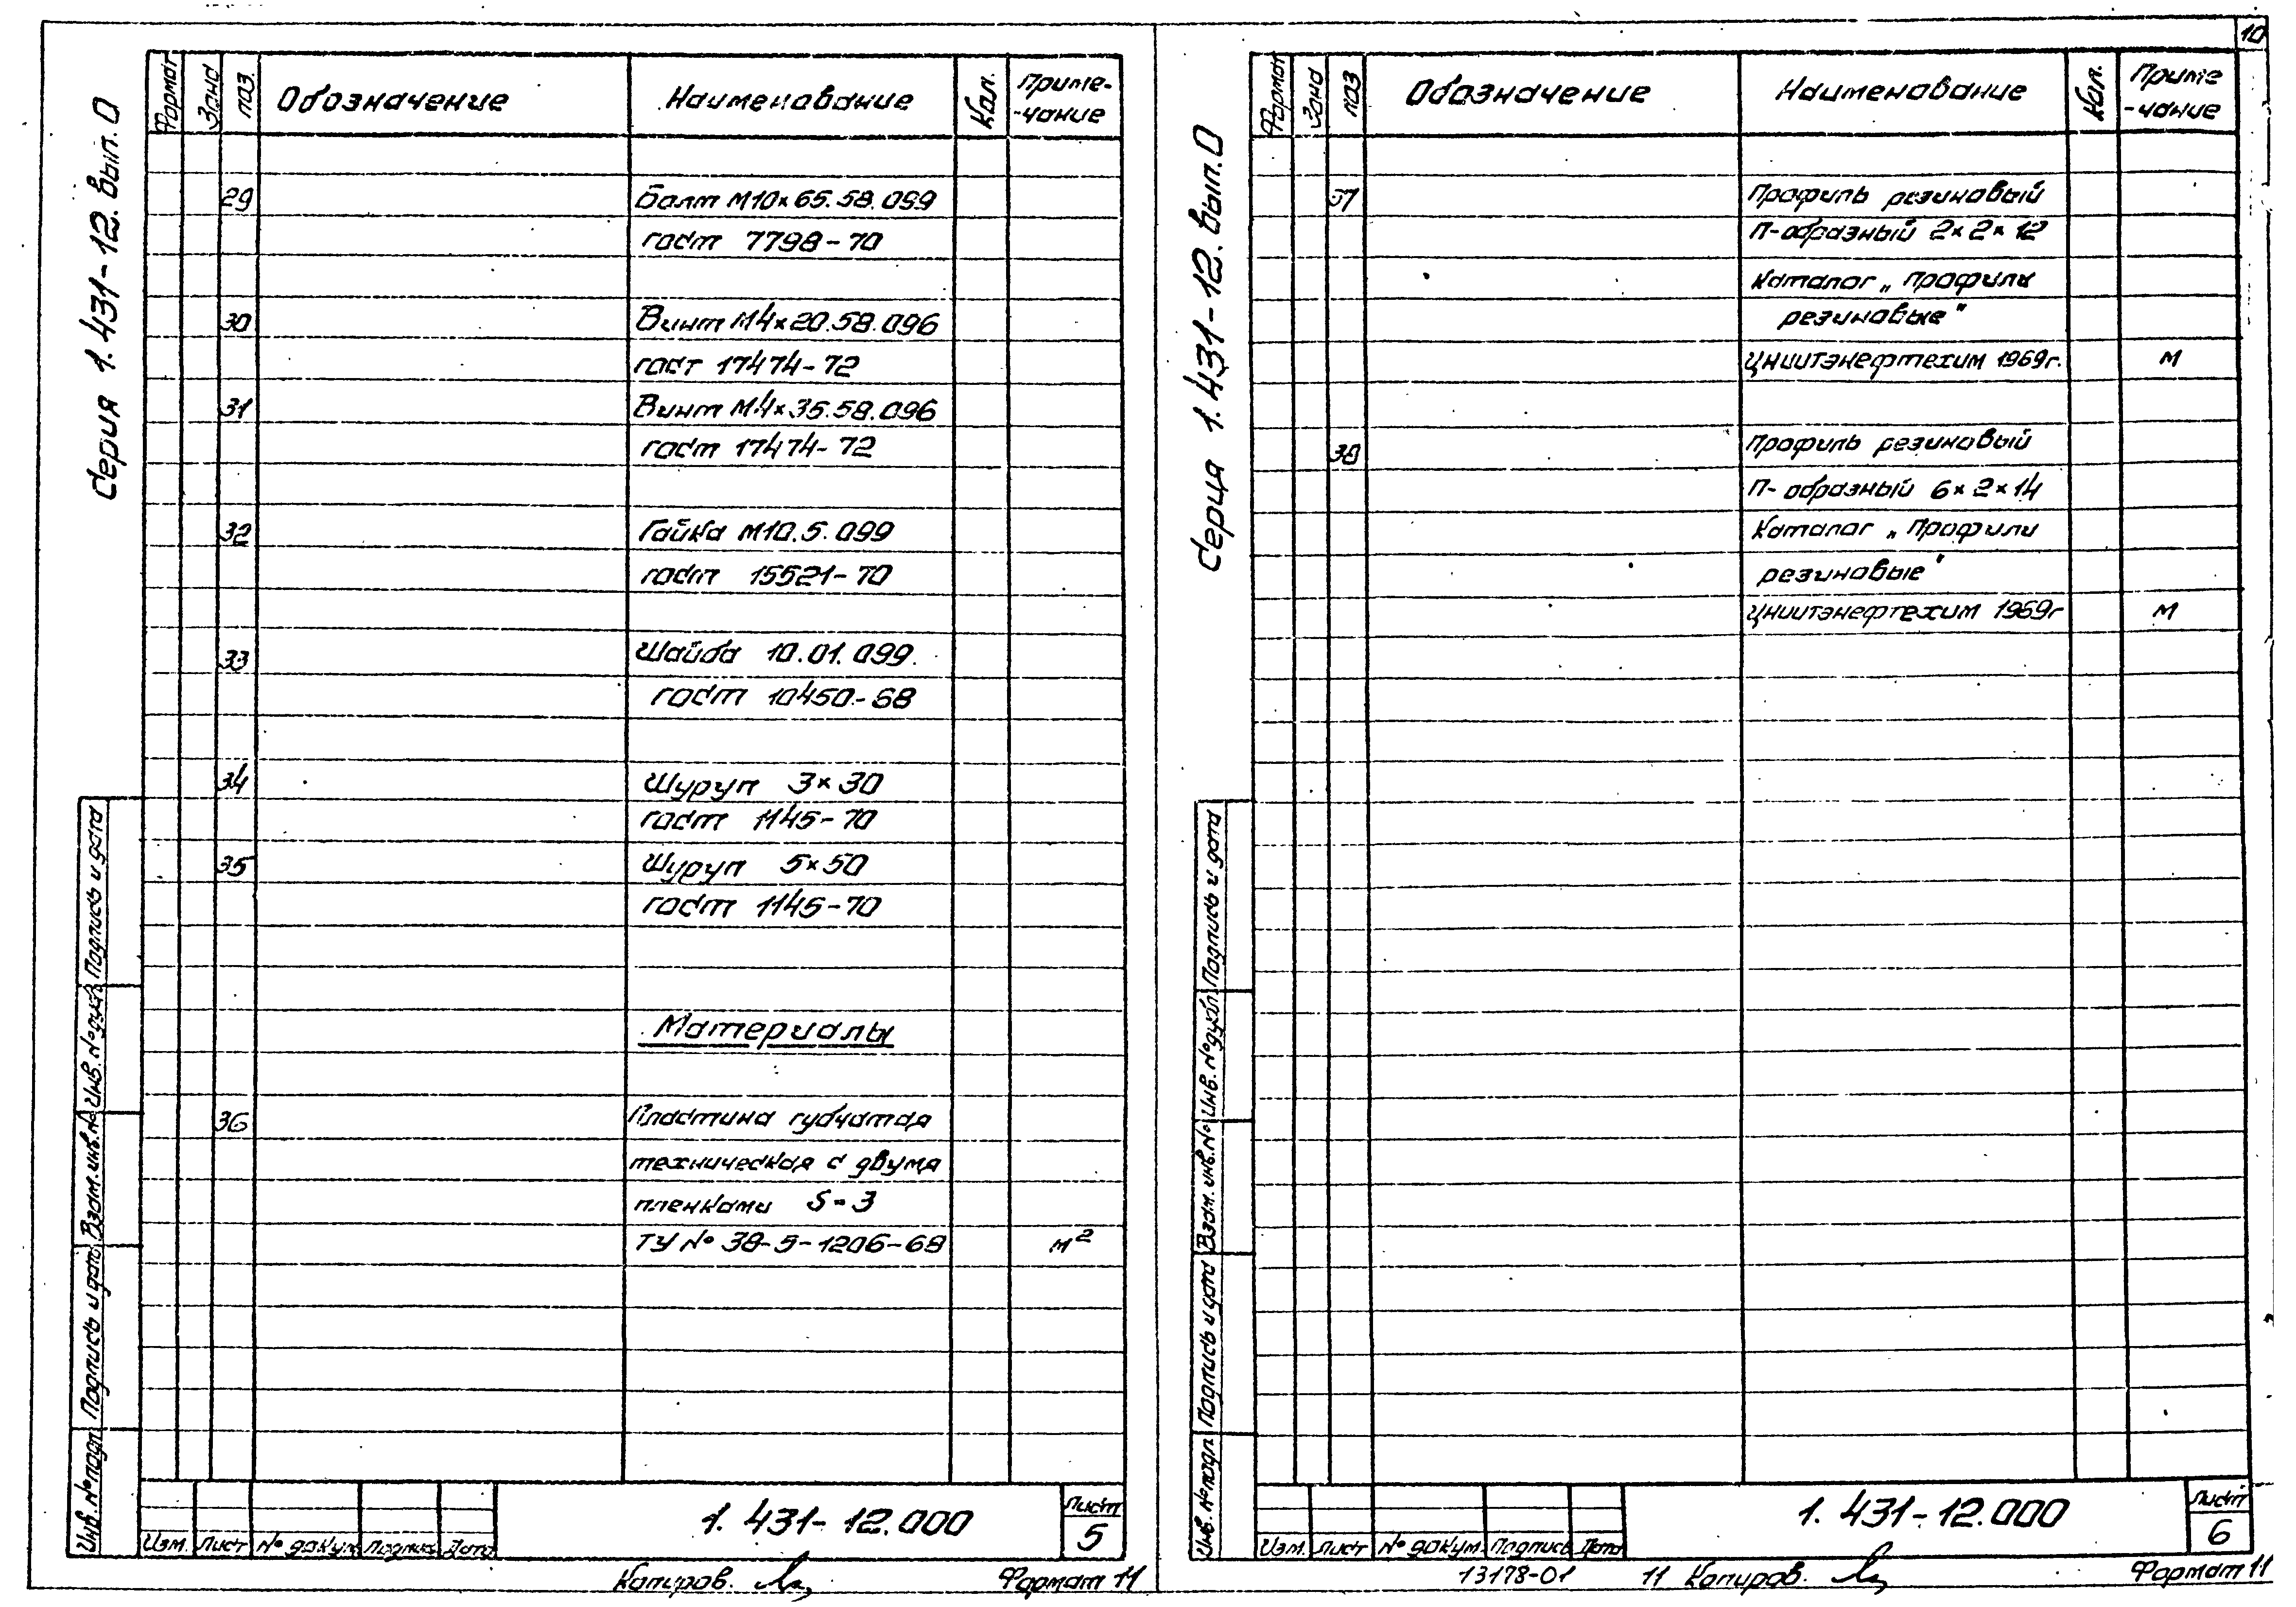 10
Серия 1.431-12. Вып.0
Формат Зона Поз. Обозначение Наименование Кол. Приме-
-чание
29 Болт М10×65.58.099
ГОСТ 7798-70
30 Винт М4×20.58.096
ГОСТ 17474-72
31 Винт М4×35.58.096
ГОСТ 17474-72
32 Гайка М10.5.099
ГОСТ 15521-70
33 Шайба 10.01.099.
ГОСТ 10450-68
34 Шуруп 3×30
ГОСТ 1145-70
35 Шуруп 5×50
ГОСТ 1145-70
Материалы
36 Пластина губчатая
техническая с двумя
пленками S=3
ТУ № 38-5-1206-68 м²
Инв. № подл. Подпись и дата Взам. инв. № Инв. № дубл. Подпись и дата
Изм. Лист № докум. Подпись Дата
1. 431-12.000
Лист
5
Копиров.
Формат 11
Серия 1.431-12. Вып.0
Формат Зона Поз Обозначение Наименование Кол. Приме
-чание
37 Профиль резиновый
П-образный 2×2×12
Каталог „Профили
резиновые"
ЦНИИТЭнефтехим 1969г. м
38 Профиль резиновый
П-образный 6×2×14
Каталог „Профили
резиновые"
ЦНИИТЭнефтехим 1969г м
Инв. № подл. Подпись и дата Взам. инв. № Инв. № дубл. Подпись и дата
Изм. Лист № докум. Подпись Дата
1. 431-12.000
Лист
6
13178-01 11 Копиров.
Формат 11